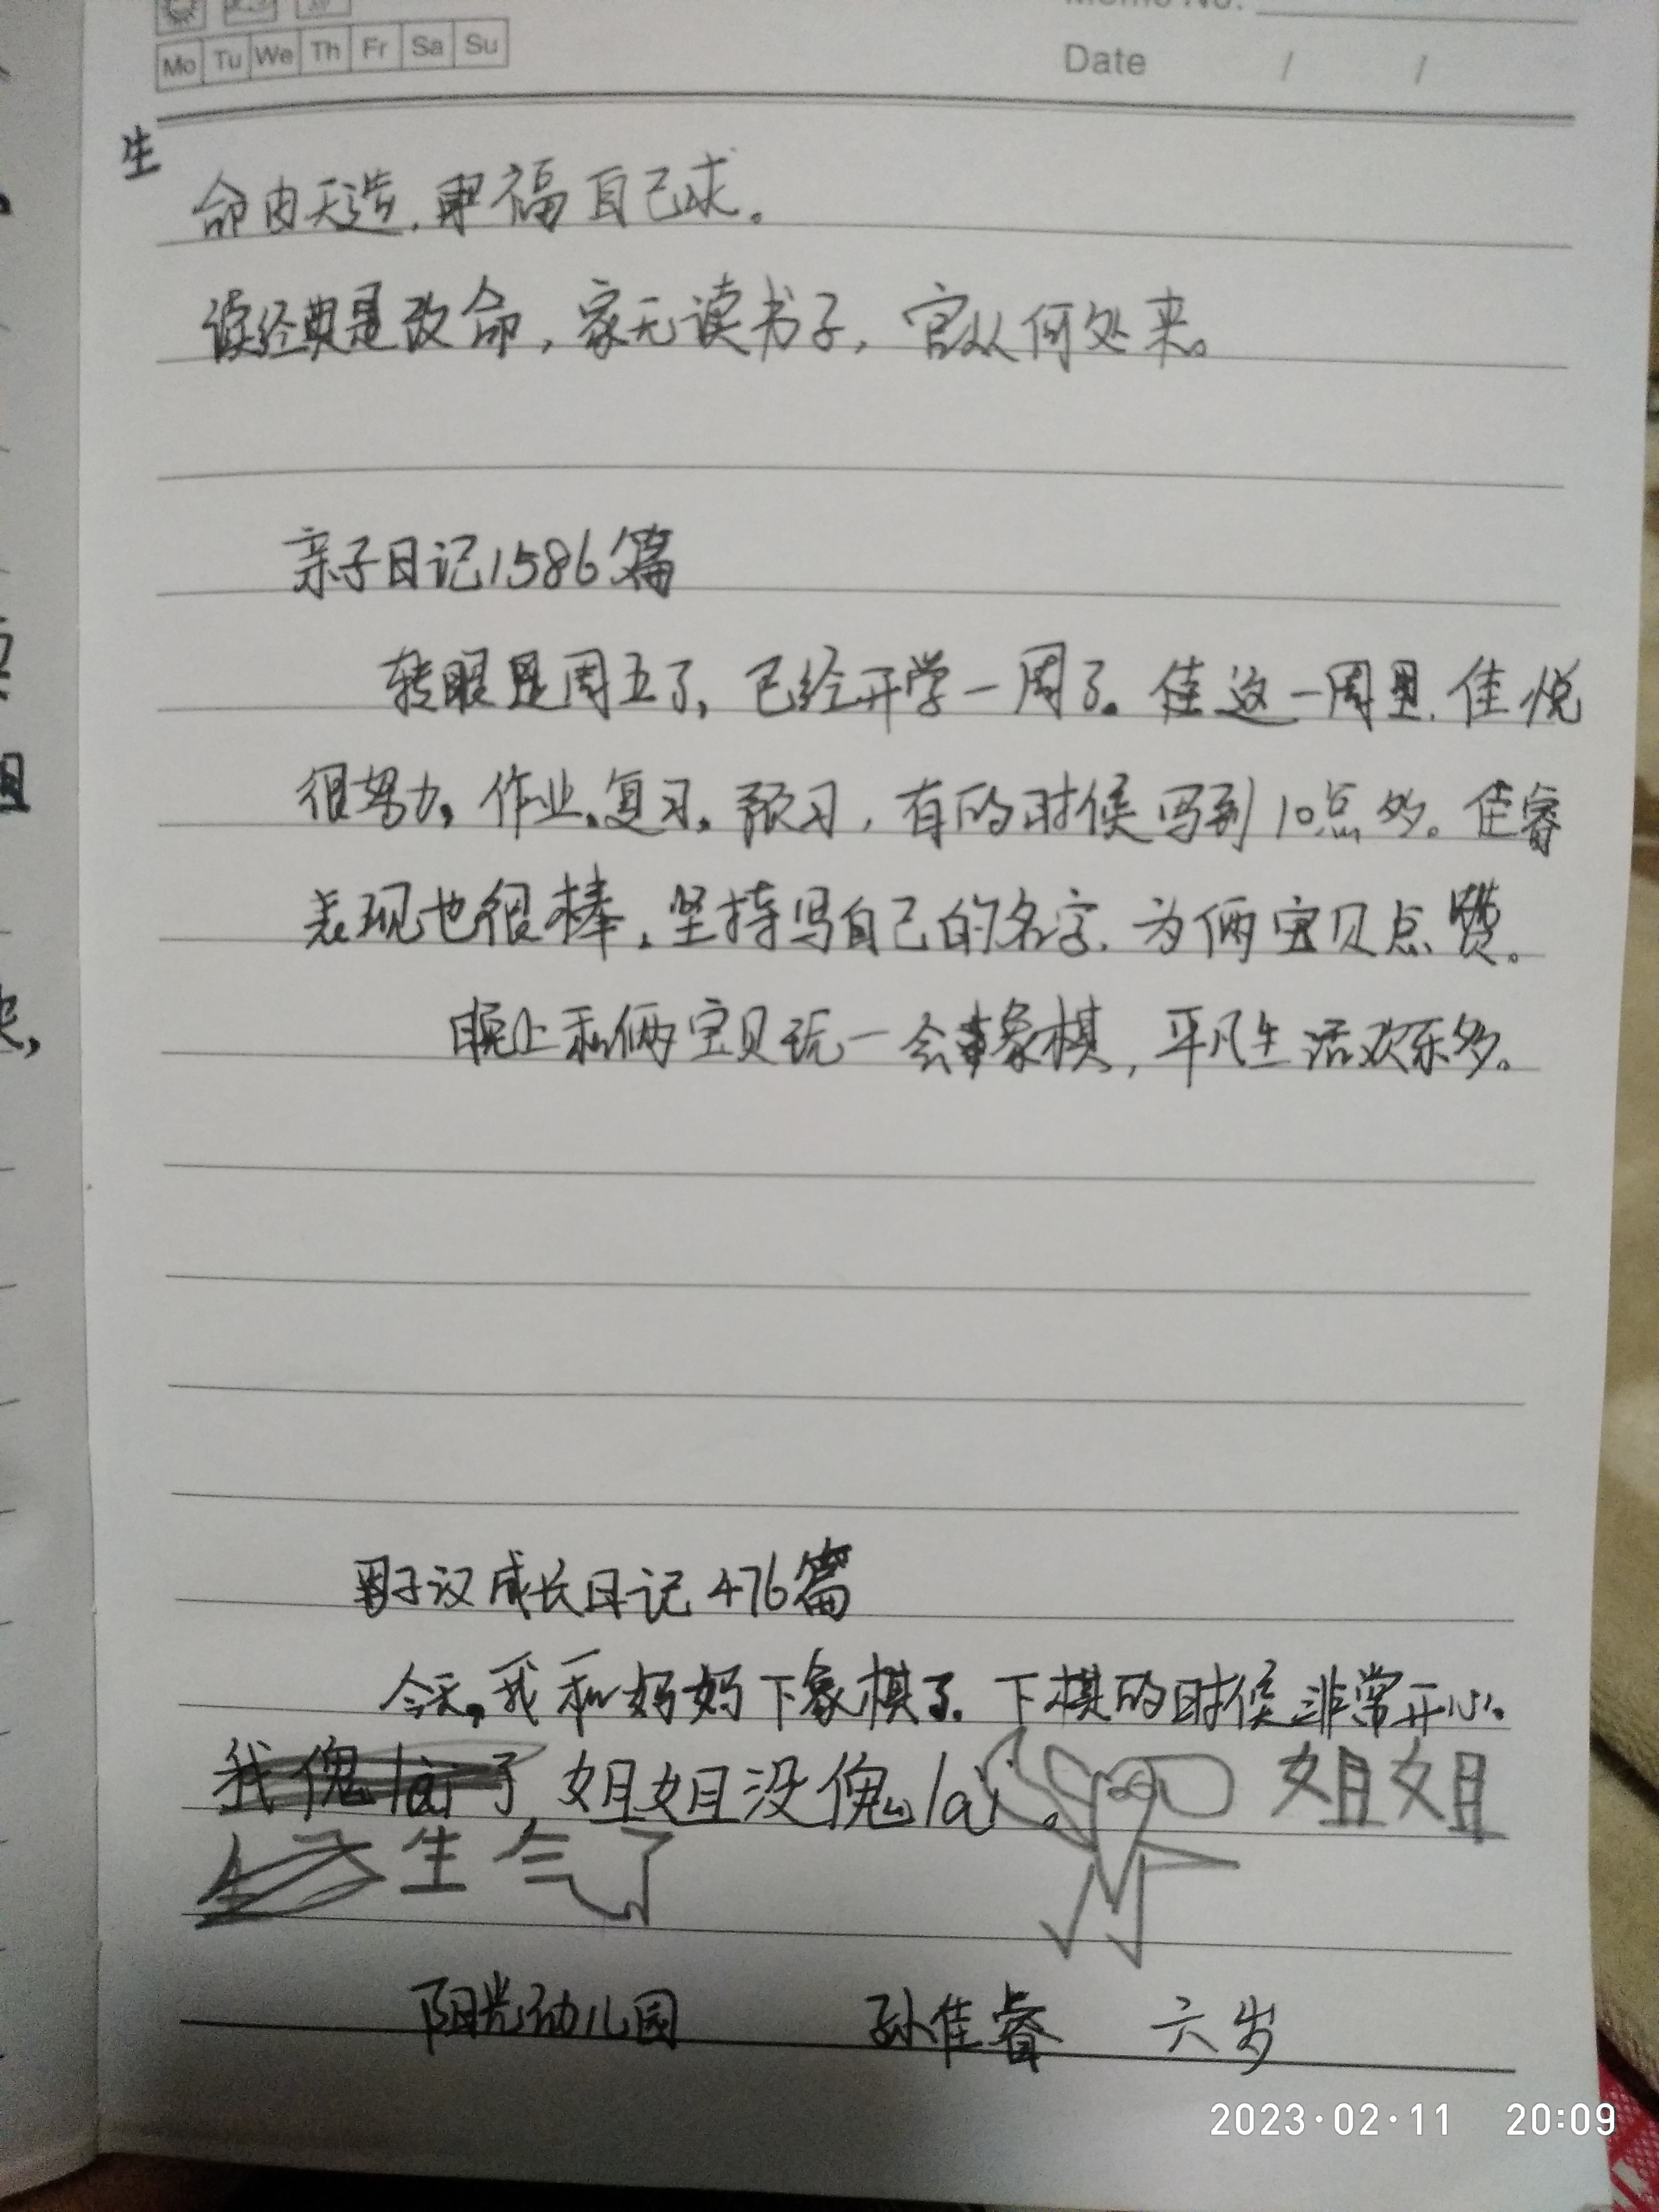 Memo No.
Mo Tu We Th Fr Sa Su
Date / /
生
命由天造,福自己求。
读经典是改命,家无读书子,官从何处来。
亲子日记1586篇
转眼是周五了,已经开学一周了。佳这一周里,佳悦
很努力,作业、复习、预习,有的时候写到10点多。佳睿
表现也很棒,坚持写自己的名字,为俩宝贝点赞。
晚上和俩宝贝玩一会象棋,平凡生活欢乐多。
男子汉成长日记476篇
今天,我和妈妈下象棋了,下棋的时候非常开心。
我傀lài了,姐姐没傀lài。姐姐
生气了
阳光幼儿园 孙佳睿 六岁
2023·02·11 20:09